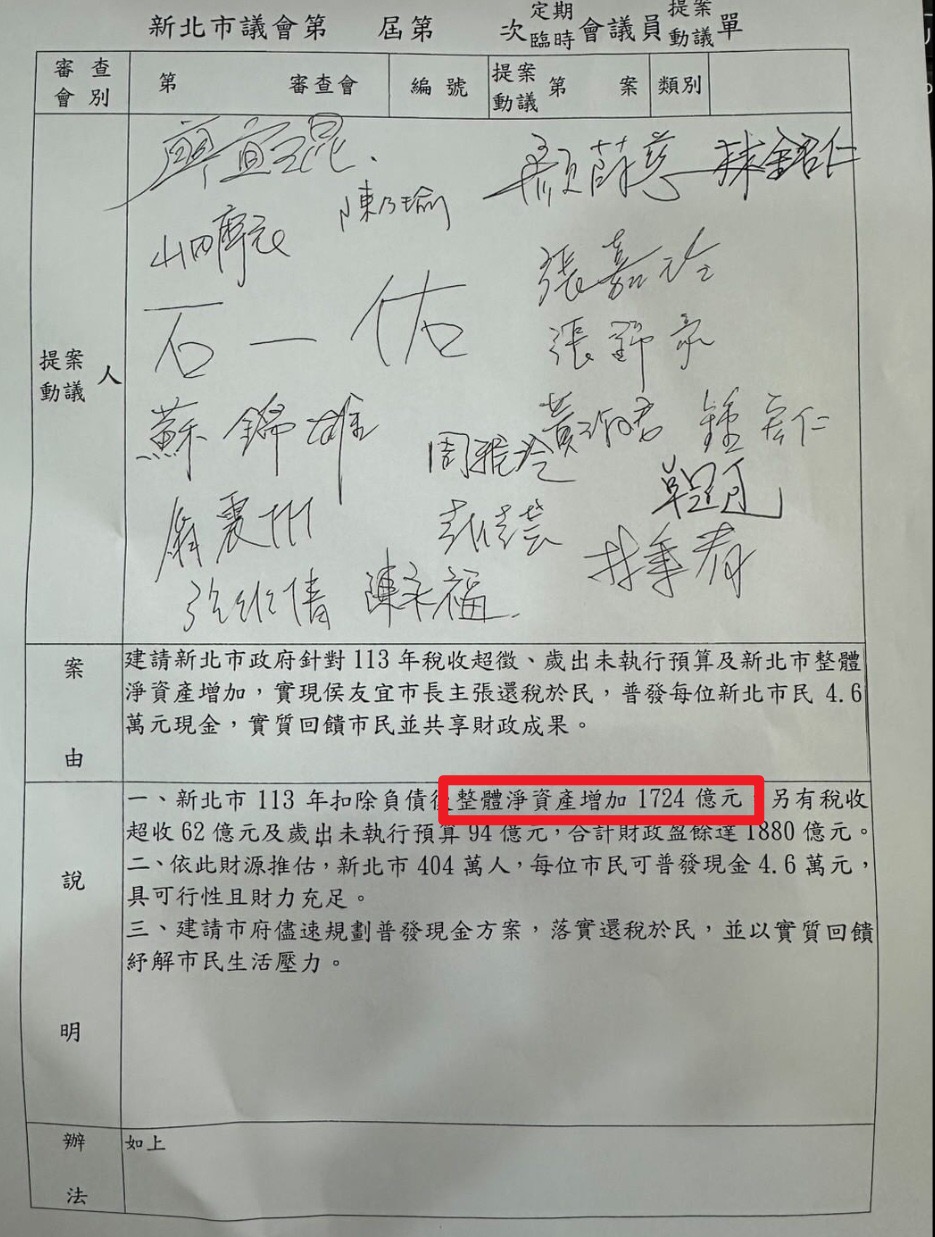 新北市議會第 屆第 次定期臨時會議員提案動議單
審查會別 第 審查會 編號 提案動議 第 案 類別
廖宜琨 顏蔚慈 林銘仁
山田摩衣 陳乃瑜
張嘉玲
石一佑
張錦豪
提案動議人
蘇錦雄 周雅玲 黃淑君 鍾宏仁
卓冠廷
翁震州 彭佳芸 林秉宥
張維倩 陳永福
案由
建請新北市政府針對 113 年稅收超徵、歲出未執行預算及新北市整體
淨資產增加，實現侯友宜市長主張還稅於民，普發每位新北市民 4.6
萬元現金，實質回饋市民並共享財政成果。
說明
一、新北市 113 年扣除負債後整體淨資產增加 1724 億元，另有稅收
超收 62 億元及歲出未執行預算 94 億元，合計財政盈餘達 1880 億元。
二、依此財源推估，新北市 404 萬人，每位市民可普發現金 4.6 萬元，
具可行性且財力充足。
三、建請市府儘速規劃普發現金方案，落實還稅於民，並以實質回饋
紓解市民生活壓力。
辦法
如上